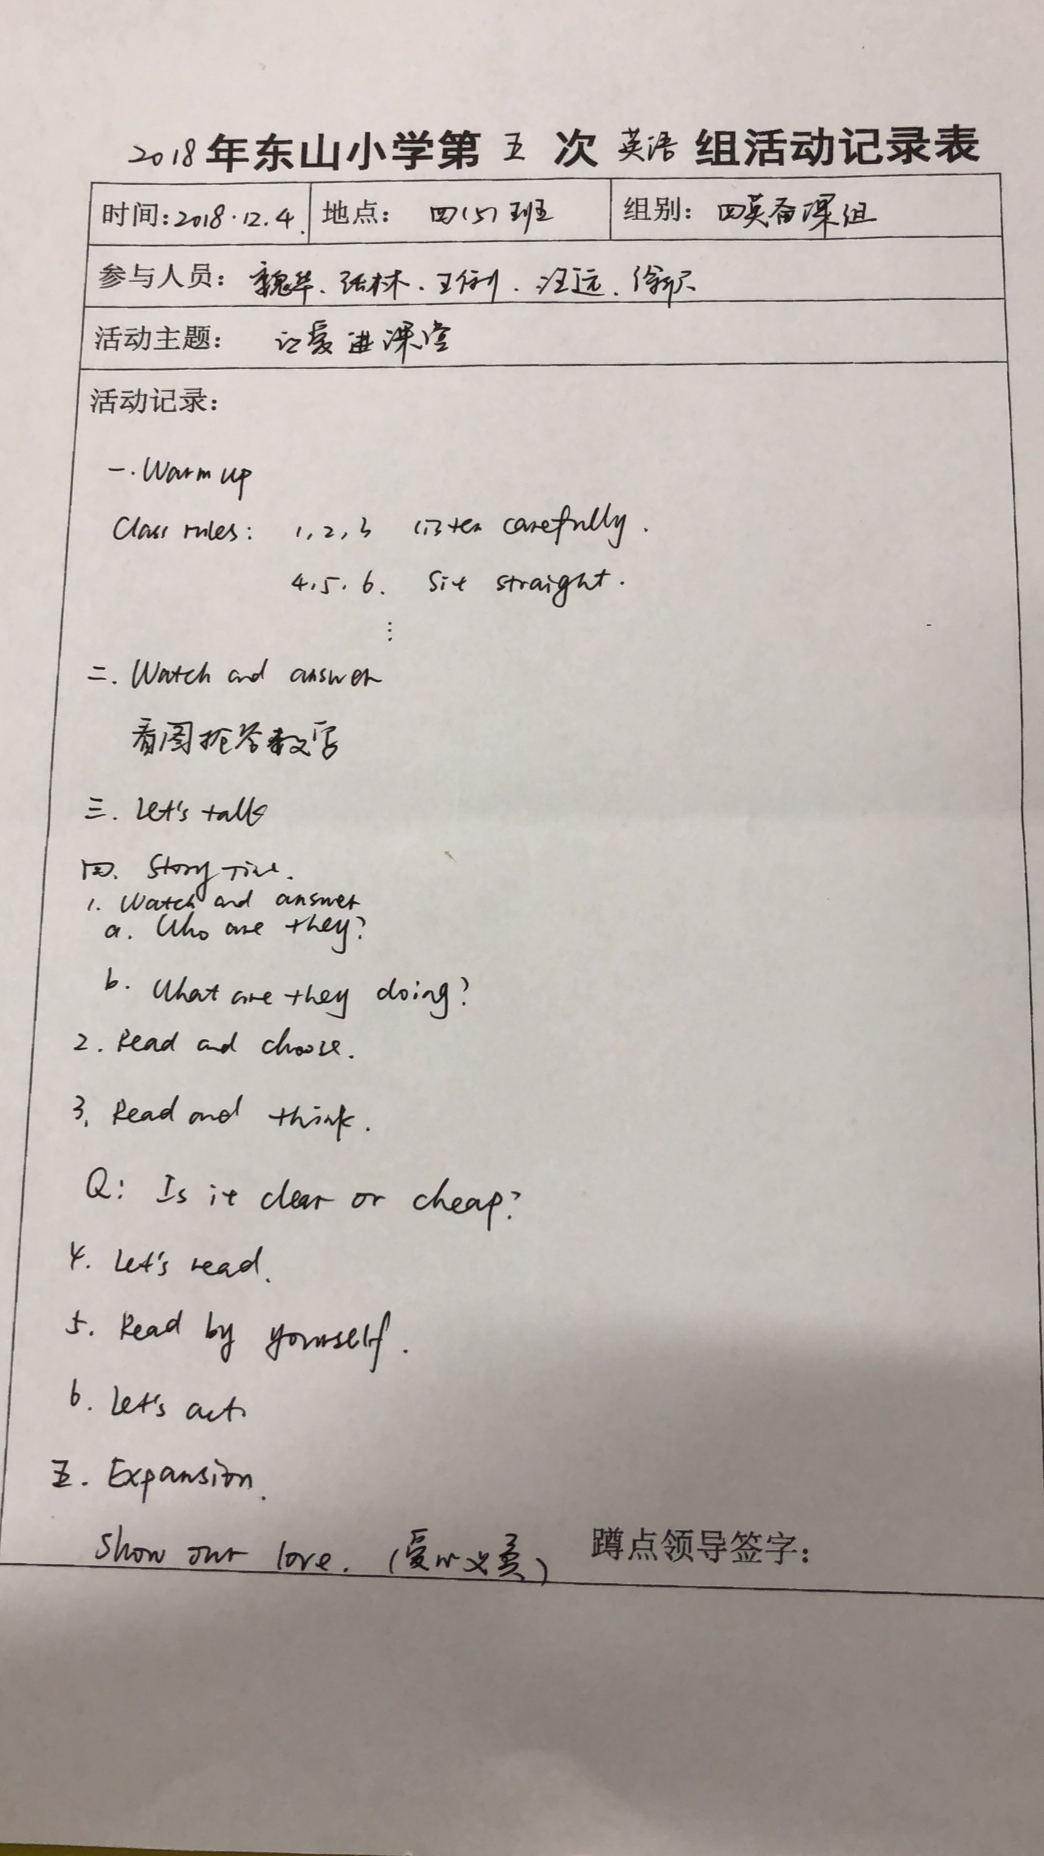 2018年东山小学第 五 次 英语 组活动记录表
时间:2018.12.4. 地点: 四(5)班 组别: 四英备课组
参与人员: 魏华、张林、王 、汪远、徐
活动主题: 让爱进课堂
活动记录:
一.Warm up
Class rules: 1,2,3 listen carefully.
4.5.6. Sit straight.
⋮
二. Watch and answer
看图抢答数字
三. Let's talk
四. Story Time.
1. Watch and answer
a. Who are they?
b. What are they doing?
2. Read and choose.
3. Read and think.
Q: Is it clear or cheap?
4. Let's read.
5. Read by yourself.
6. Let's act.
五. Expansion.
Show our love. (爱心义卖) 蹲点领导签字: